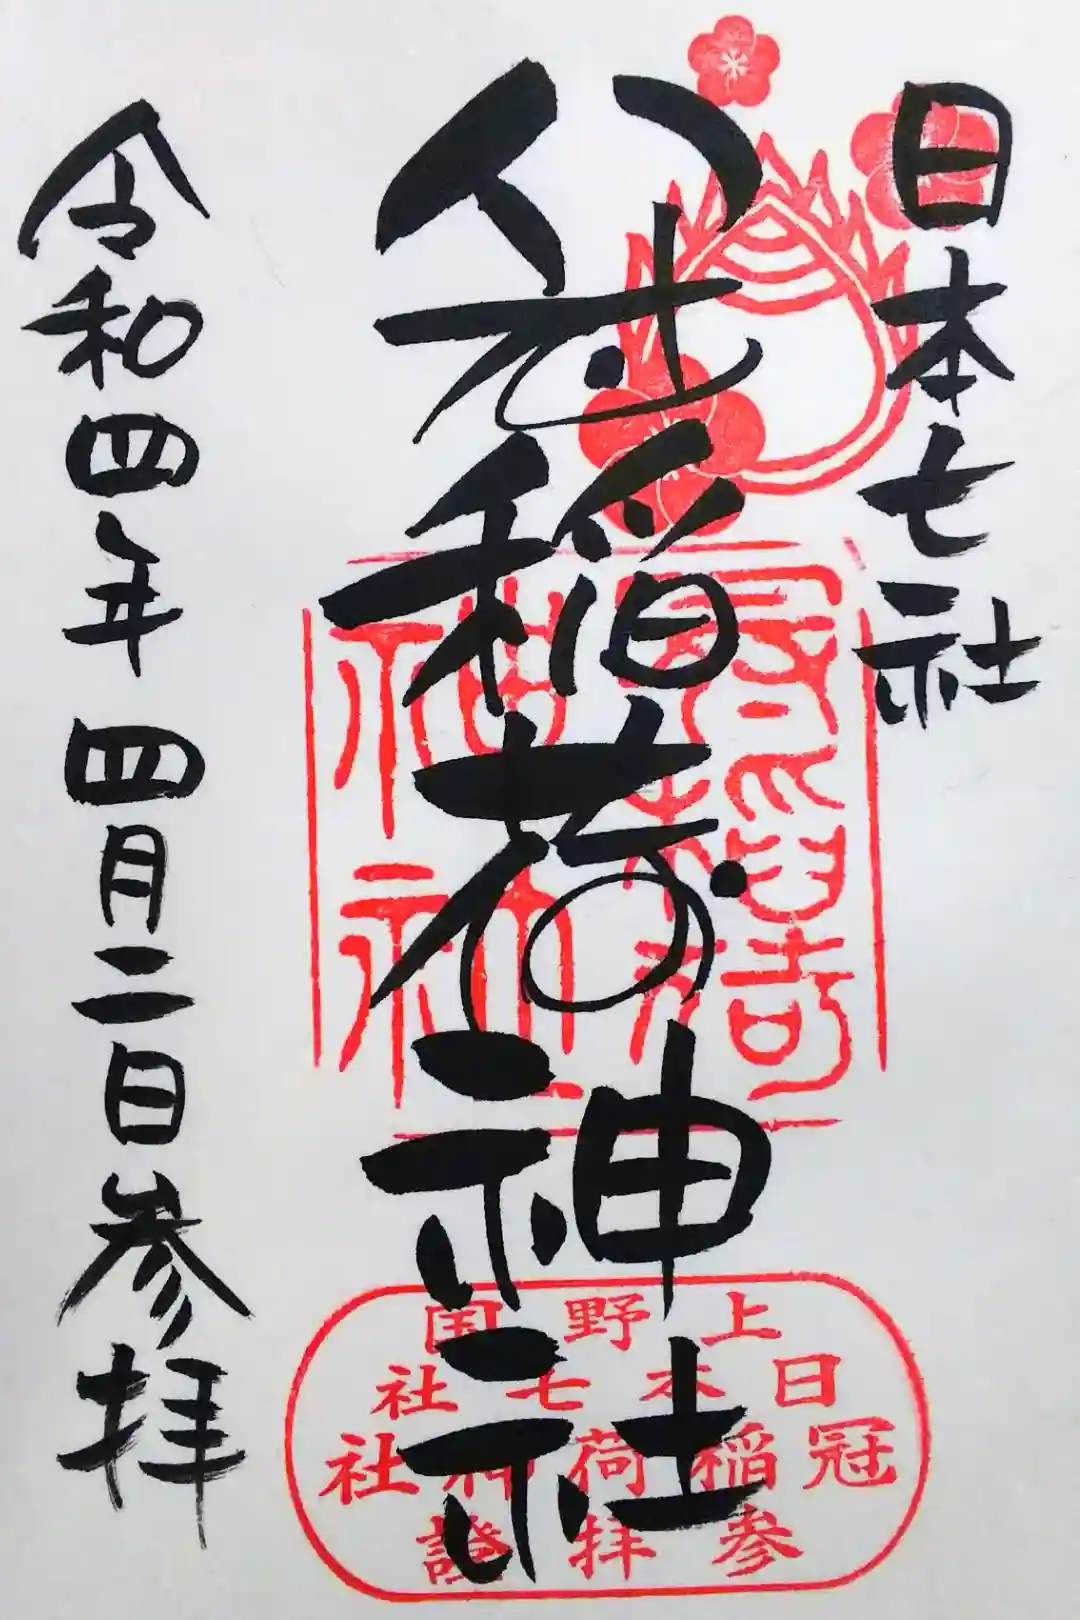 日本七社
冠稲荷神社
令和四年四月二日参拝
冠稲荷
神社
上野国
日本七社
冠稲荷神社
参拝證